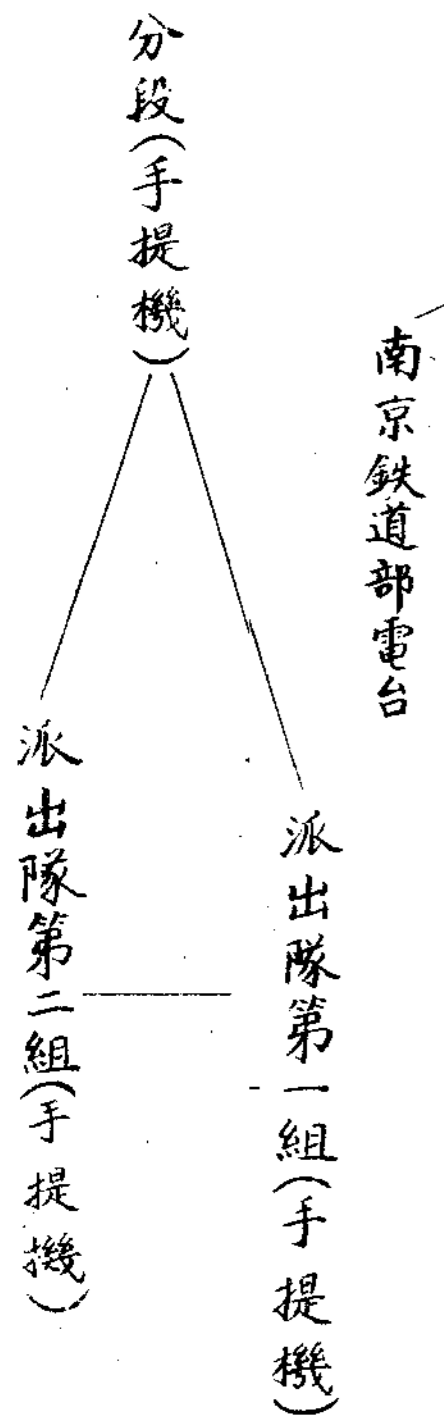 南京鉄道部電台
分段(手提機)
派出隊第一組(手提機)
派出隊第二組(手提機)